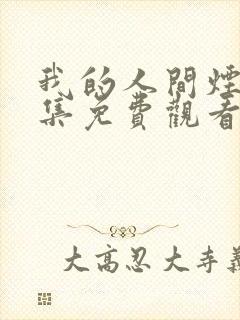 我的人間煙
集免費觀看
大高忍大寺